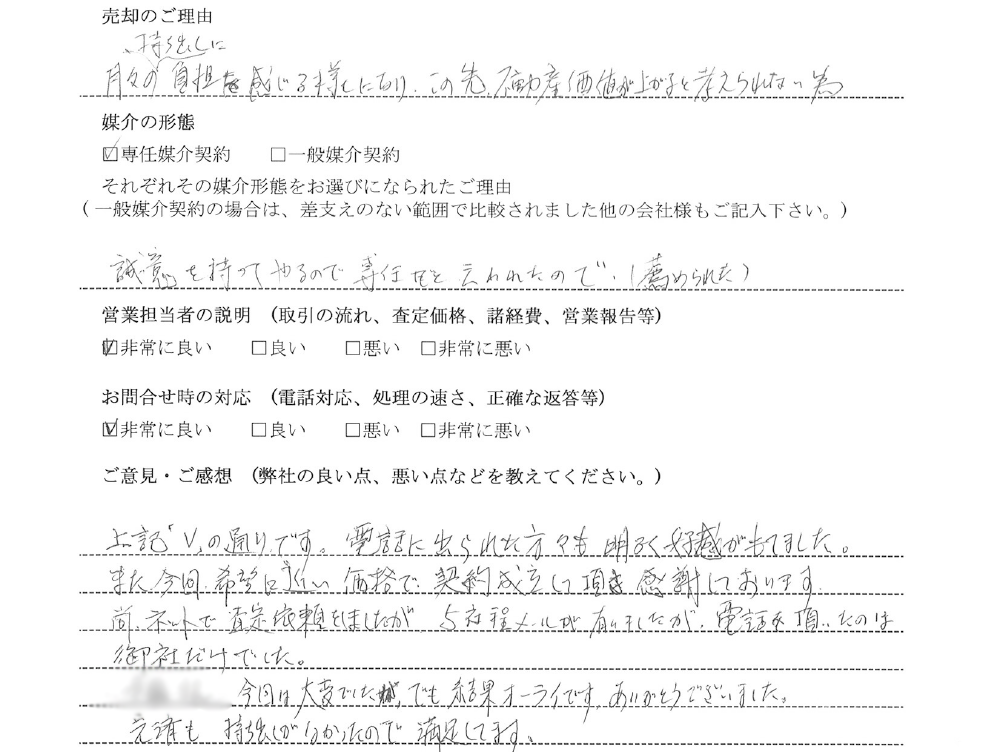 売却のご理由
、持ち出しに
月々の負担を感じる様になり、この先、不動産価値が上がると考えられない為
媒介の形態
☑専任媒介契約 □一般媒介契約
それぞれその媒介形態をお選びになられたご理由
(一般媒介契約の場合は、差支えのない範囲で比較されました他の会社様もご記入下さい。)
誠意を持ってやるので専任をと言われたので。(薦められた)
営業担当者の説明 (取引の流れ、査定価格、諸経費、営業報告等)
☑非常に良い □良い □悪い □非常に悪い
お問合せ時の対応 (電話対応、処理の速さ、正確な返答等)
☑非常に良い □良い □悪い □非常に悪い
ご意見・ご感想 (弊社の良い点、悪い点などを教えてください。)
上記「V」の通りです。電話に出られた方々も明るく好感がもてました。
また、今回、希望に近い価格で、契約成立して頂き感謝しております。
尚、ネットで査定依頼をしましたが、5社程メールが有りましたが、電話を頂いたのは
御社だけでした。
今回は大変でしたが、でも結果オーライです。ありがとうございました。
も持ち出しがなかったので満足してます。